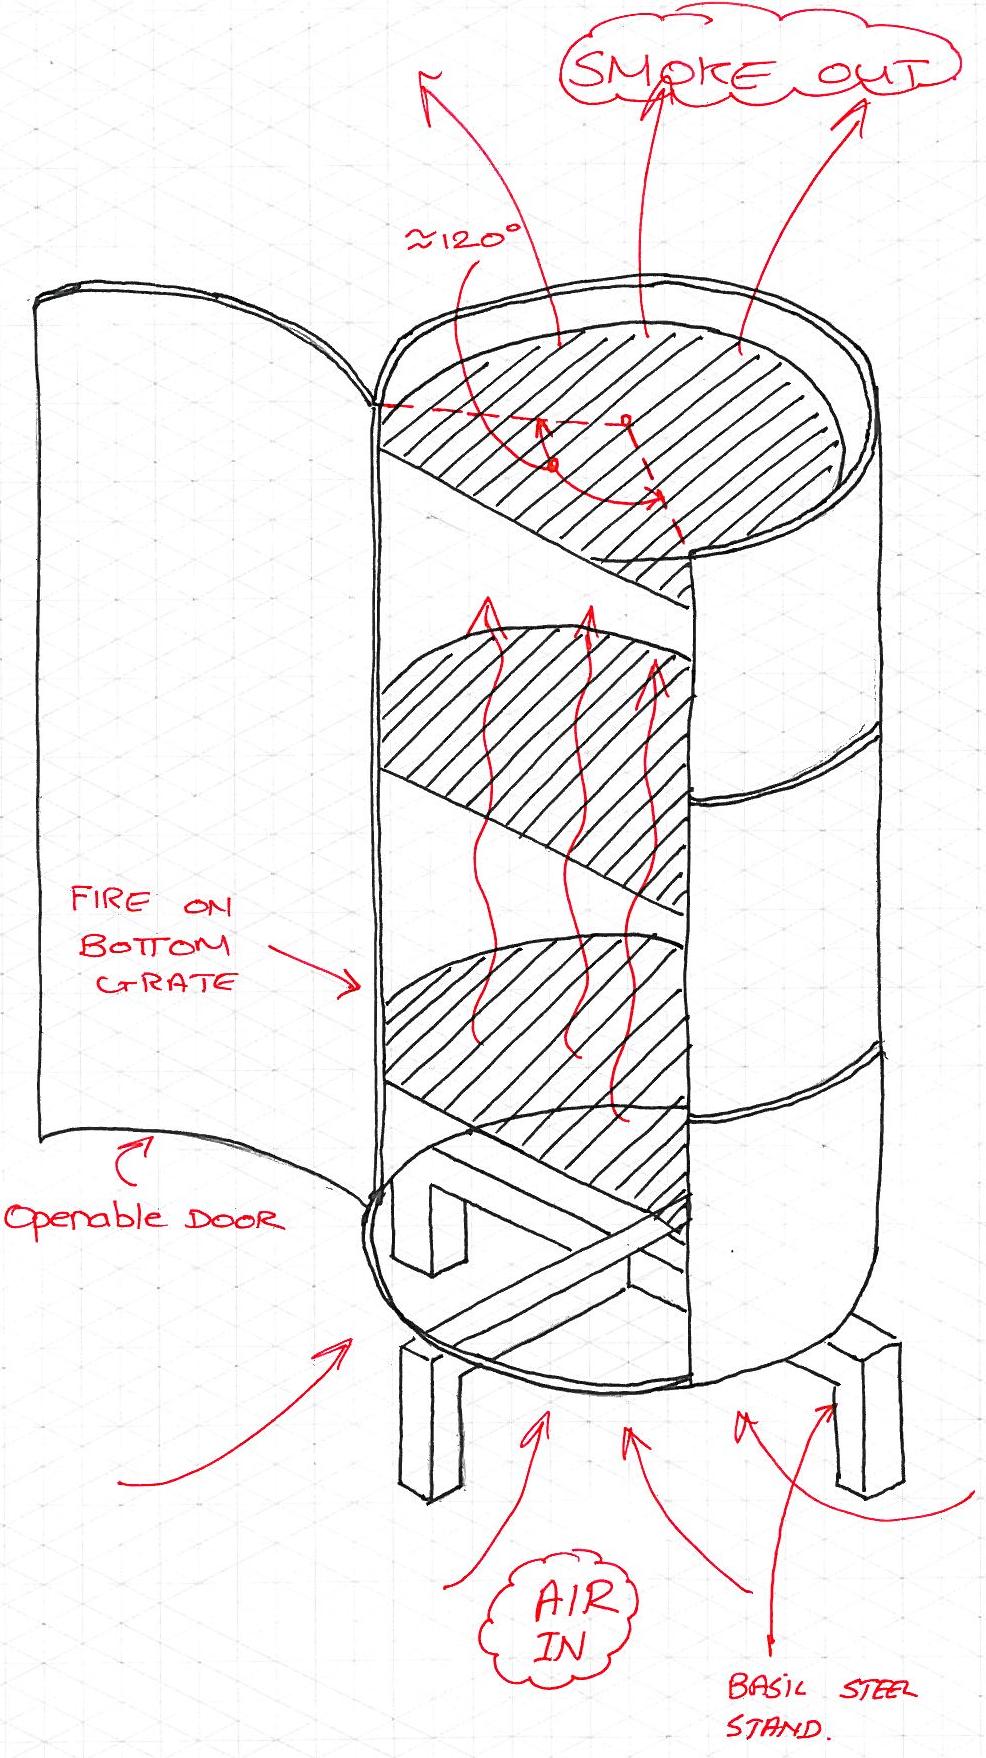 SMOKE OUT
≈120°
FIRE ON
BOTTOM
GRATE
Openable DOOR
AIR
IN
BASIC STEEL
STAND.